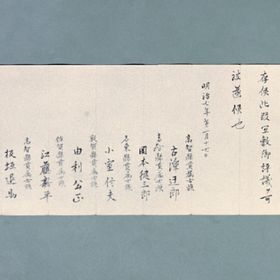 存候此段宜敷御評議可
被遊候也
明治七年第一月十七日
高智縣貫属士族
古澤迂郎
高智縣貫属士族
岡本健三郎
名東縣貫属士族
小室信夫
敦賀縣貫属士族
由利公正
佐賀縣貫属士族
江藤新平
高智縣貫属士族
板垣退助